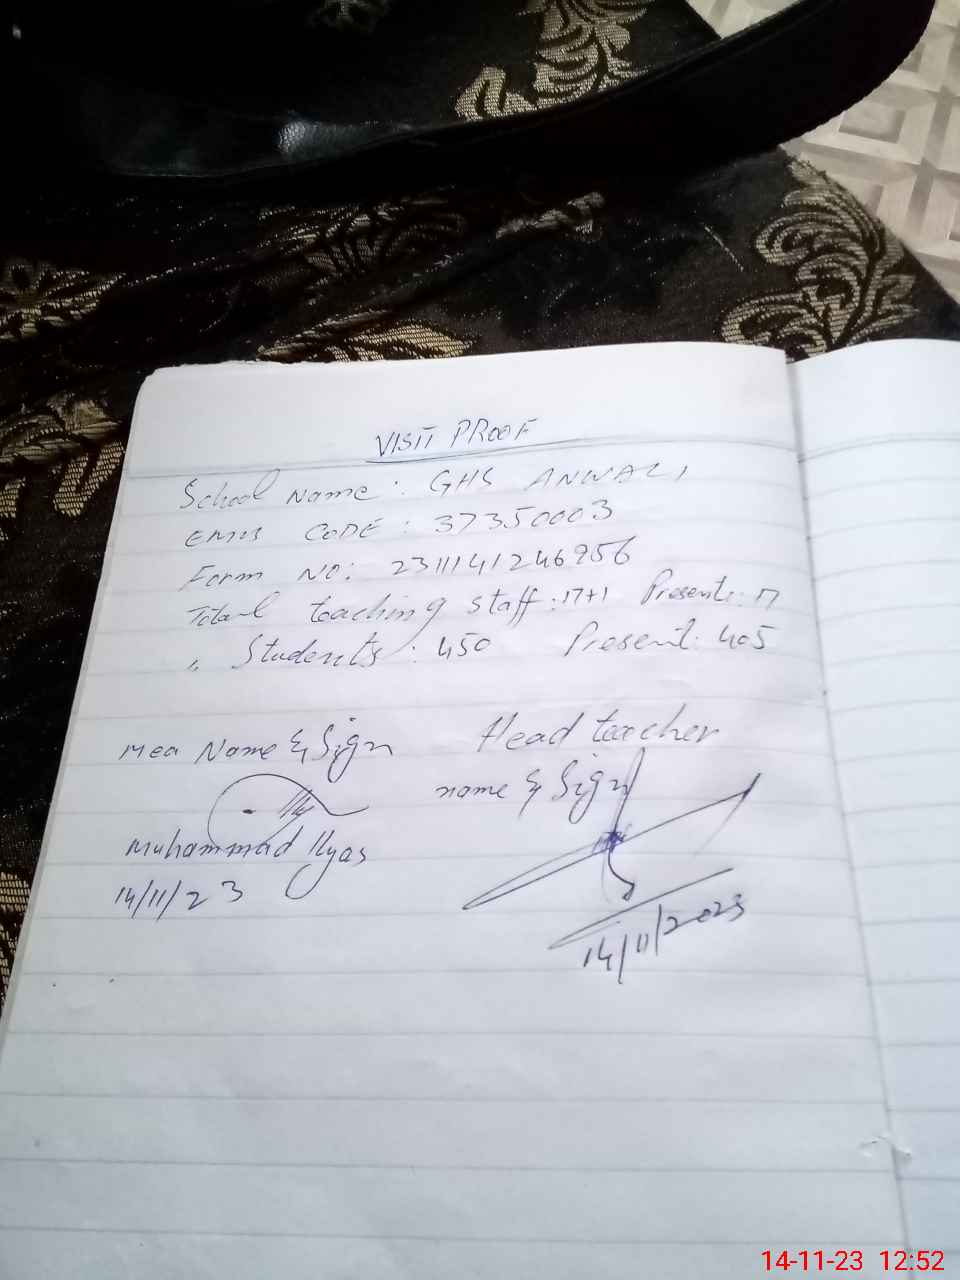 VISIT PROOF
School Name: GHS ANWALI
EMIS CODE: 37350003
Form NO: 2311141246956
Total teaching staff: 17+1 Presents: 17
" Students: 450 Present: 405
Mea Name & Sign
Head teacher
name & Sign
Muhammad Ilyas
14/11/23
14/11/2023
14-11-23 12:52